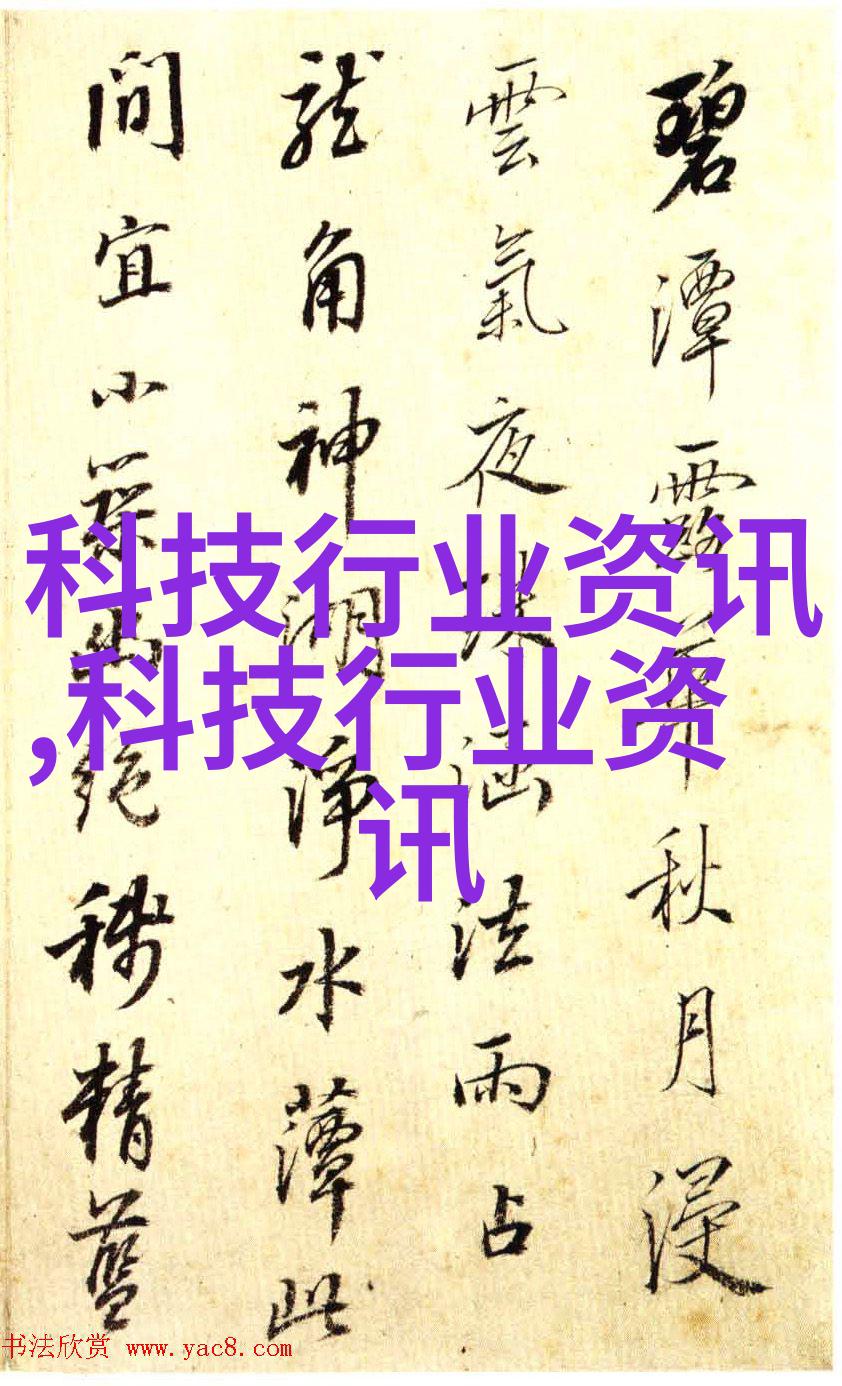 碧潭露華秋月浸
雲氣夜涵法雨占
龍角神湖淨水藫此
間宜小築幽絕稱精藍
科技行业资讯
,科技行业资
讯
书法欣赏 www.yac8.com